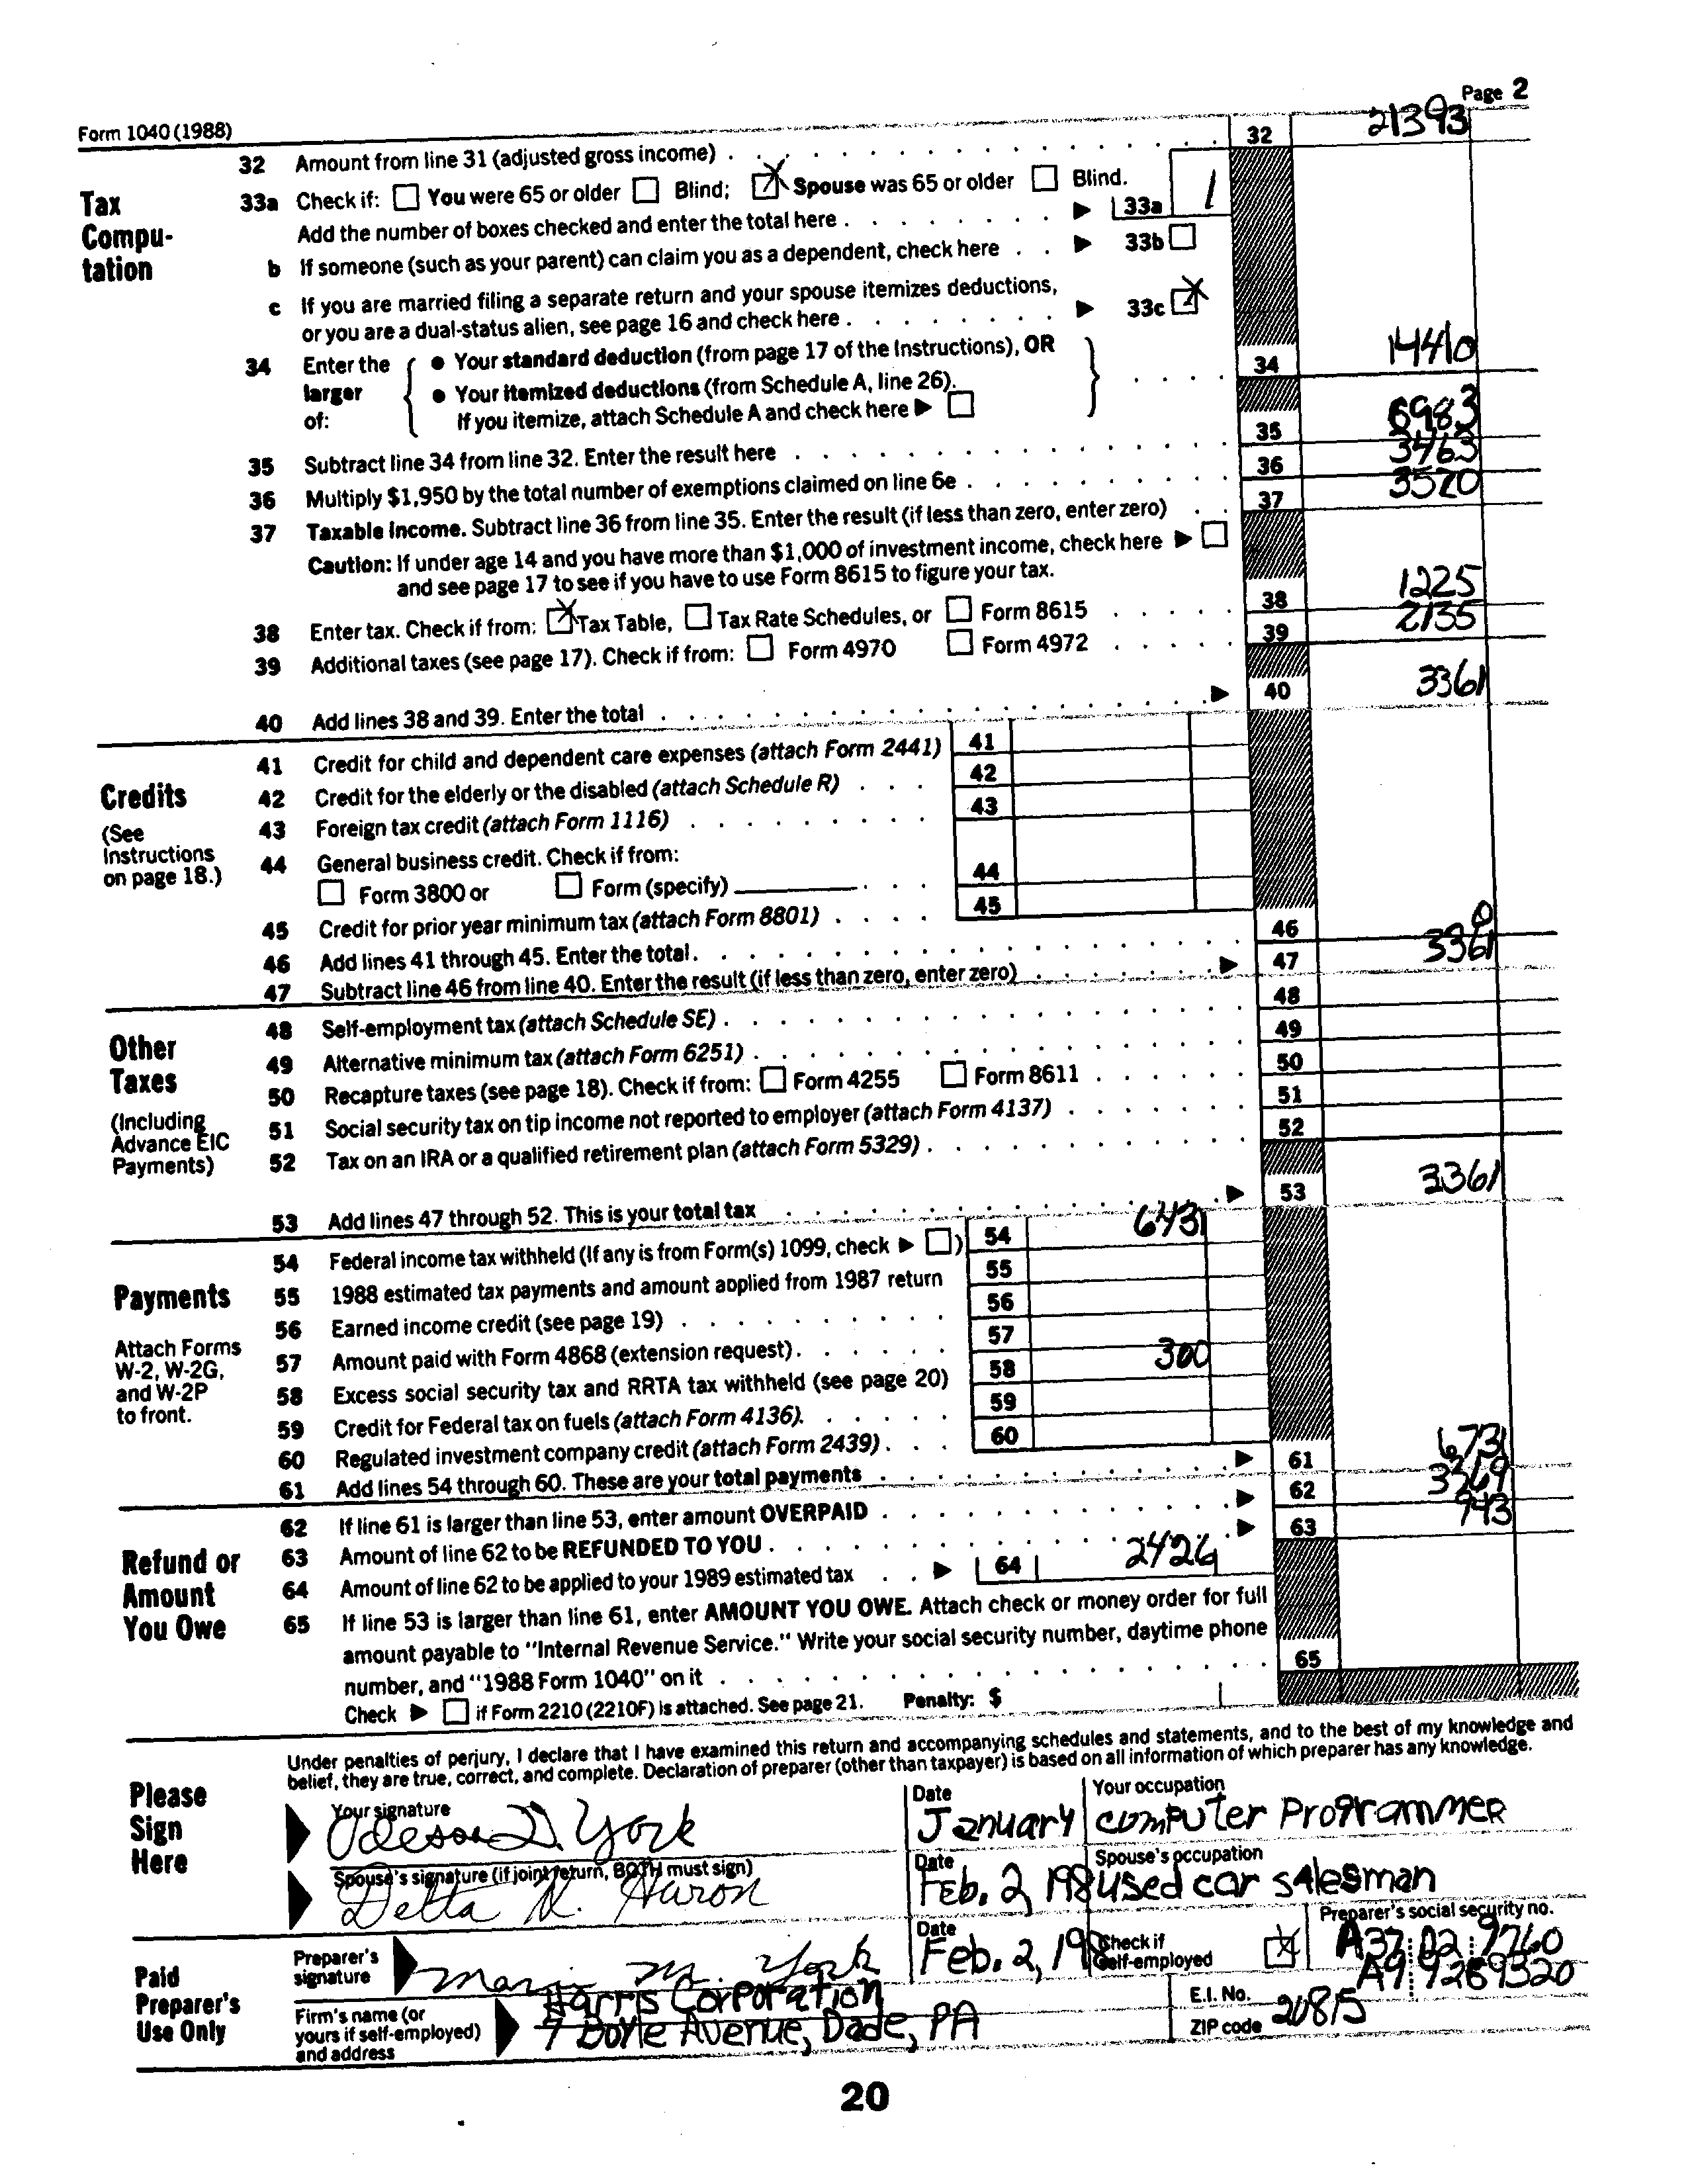 Form 1040 (1988) Page 2
Tax Compu- tation
32 Amount from line 31 (adjusted gross income) 32 21393
33a Check if: You were 65 or older Blind; X Spouse was 65 or older Blind.
Add the number of boxes checked and enter the total here 33a 1
b If someone (such as your parent) can claim you as a dependent, check here 33b
c If you are married filing a separate return and your spouse itemizes deductions,
or you are a dual-status alien, see page 16 and check here 33c X
34 Enter the larger of: • Your standard deduction (from page 17 of the Instructions), OR
• Your itemized deductions (from Schedule A, line 26).
If you itemize, attach Schedule A and check here 34 14410
35 Subtract line 34 from line 32. Enter the result here 35 6983
36 Multiply $1,950 by the total number of exemptions claimed on line 6e 36 3463
37 Taxable income. Subtract line 36 from line 35. Enter the result (if less than zero, enter zero) 37 3520
Caution: If under age 14 and you have more than $1,000 of investment income, check here
and see page 17 to see if you have to use Form 8615 to figure your tax.
38 Enter tax. Check if from: X Tax Table, Tax Rate Schedules, or Form 8615 38 1225
39 Additional taxes (see page 17). Check if from: Form 4970 Form 4972 39 2135
40 Add lines 38 and 39. Enter the total 40 3361
Credits
(See Instructions on page 18.)
41 Credit for child and dependent care expenses (attach Form 2441) 41
42 Credit for the elderly or the disabled (attach Schedule R) 42
43 Foreign tax credit (attach Form 1116) 43
44 General business credit. Check if from:
Form 3800 or Form (specify) 44
45 Credit for prior year minimum tax (attach Form 8801) 45
46 Add lines 41 through 45. Enter the total 46 0
47 Subtract line 46 from line 40. Enter the result (if less than zero, enter zero) 47 3361
Other Taxes
(Including Advance EIC Payments)
48 Self-employment tax (attach Schedule SE) 48
49 Alternative minimum tax (attach Form 6251) 49
50 Recapture taxes (see page 18). Check if from: Form 4255 Form 8611 50
51 Social security tax on tip income not reported to employer (attach Form 4137) 51
52 Tax on an IRA or a qualified retirement plan (attach Form 5329) 52
53 Add lines 47 through 52. This is your total tax 53 3361
Payments
Attach Forms W-2, W-2G, and W-2P to front.
54 Federal income tax withheld (If any is from Form(s) 1099, check ) 54 6431
55 1988 estimated tax payments and amount applied from 1987 return 55
56 Earned income credit (see page 19) 56
57 Amount paid with Form 4868 (extension request) 57
58 Excess social security tax and RRTA tax withheld (see page 20) 58 300
59 Credit for Federal tax on fuels (attach Form 4136) 59
60 Regulated investment company credit (attach Form 2439) 60
61 Add lines 54 through 60. These are your total payments 61 6731
Refund or Amount You Owe
62 If line 61 is larger than line 53, enter amount OVERPAID 62 3369
63 Amount of line 62 to be REFUNDED TO YOU 63 943
64 Amount of line 62 to be applied to your 1989 estimated tax 64 2426
65 If line 53 is larger than line 61, enter AMOUNT YOU OWE. Attach check or money order for full
amount payable to "Internal Revenue Service." Write your social security number, daytime phone
number, and "1988 Form 1040" on it 65
Check if Form 2210 (2210F) is attached. See page 21. Penalty: $
Please Sign Here
Under penalties of perjury, I declare that I have examined this return and accompanying schedules and statements, and to the best of my knowledge and
belief, they are true, correct, and complete. Declaration of preparer (other than taxpayer) is based on all information of which preparer has any knowledge.
Your signature Date Your occupation
Odessa D. York January computer Programmer
Spouse's signature (if joint return, BOTH must sign) Date Spouse's occupation
Delta N. Aaron Feb. 2, 198 used car salesman
Paid Preparer's Use Only
Preparer's signature Date Check if self-employed X Preparer's social security no.
M. York Feb. 2, 198 A37 02 9760
Firm's name (or yours if self-employed) and address
Harris Corporation E.I. No. A9 9269320
7 Boyle Avenue, Dade, PA ZIP code 20815
20